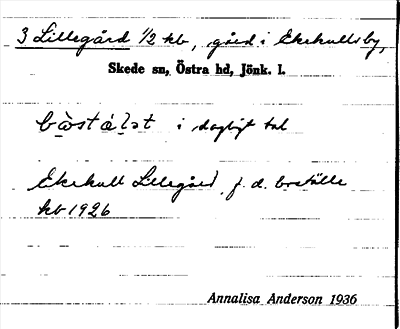 3 Lillegård 1/2 kb, gård i Ekekulls by,
Skede sn, Östra hd, Jönk. l.
i dagligt tal
Ekekull Lillegård f. d. boställe
kb 1926
Annalisa Anderson 1936